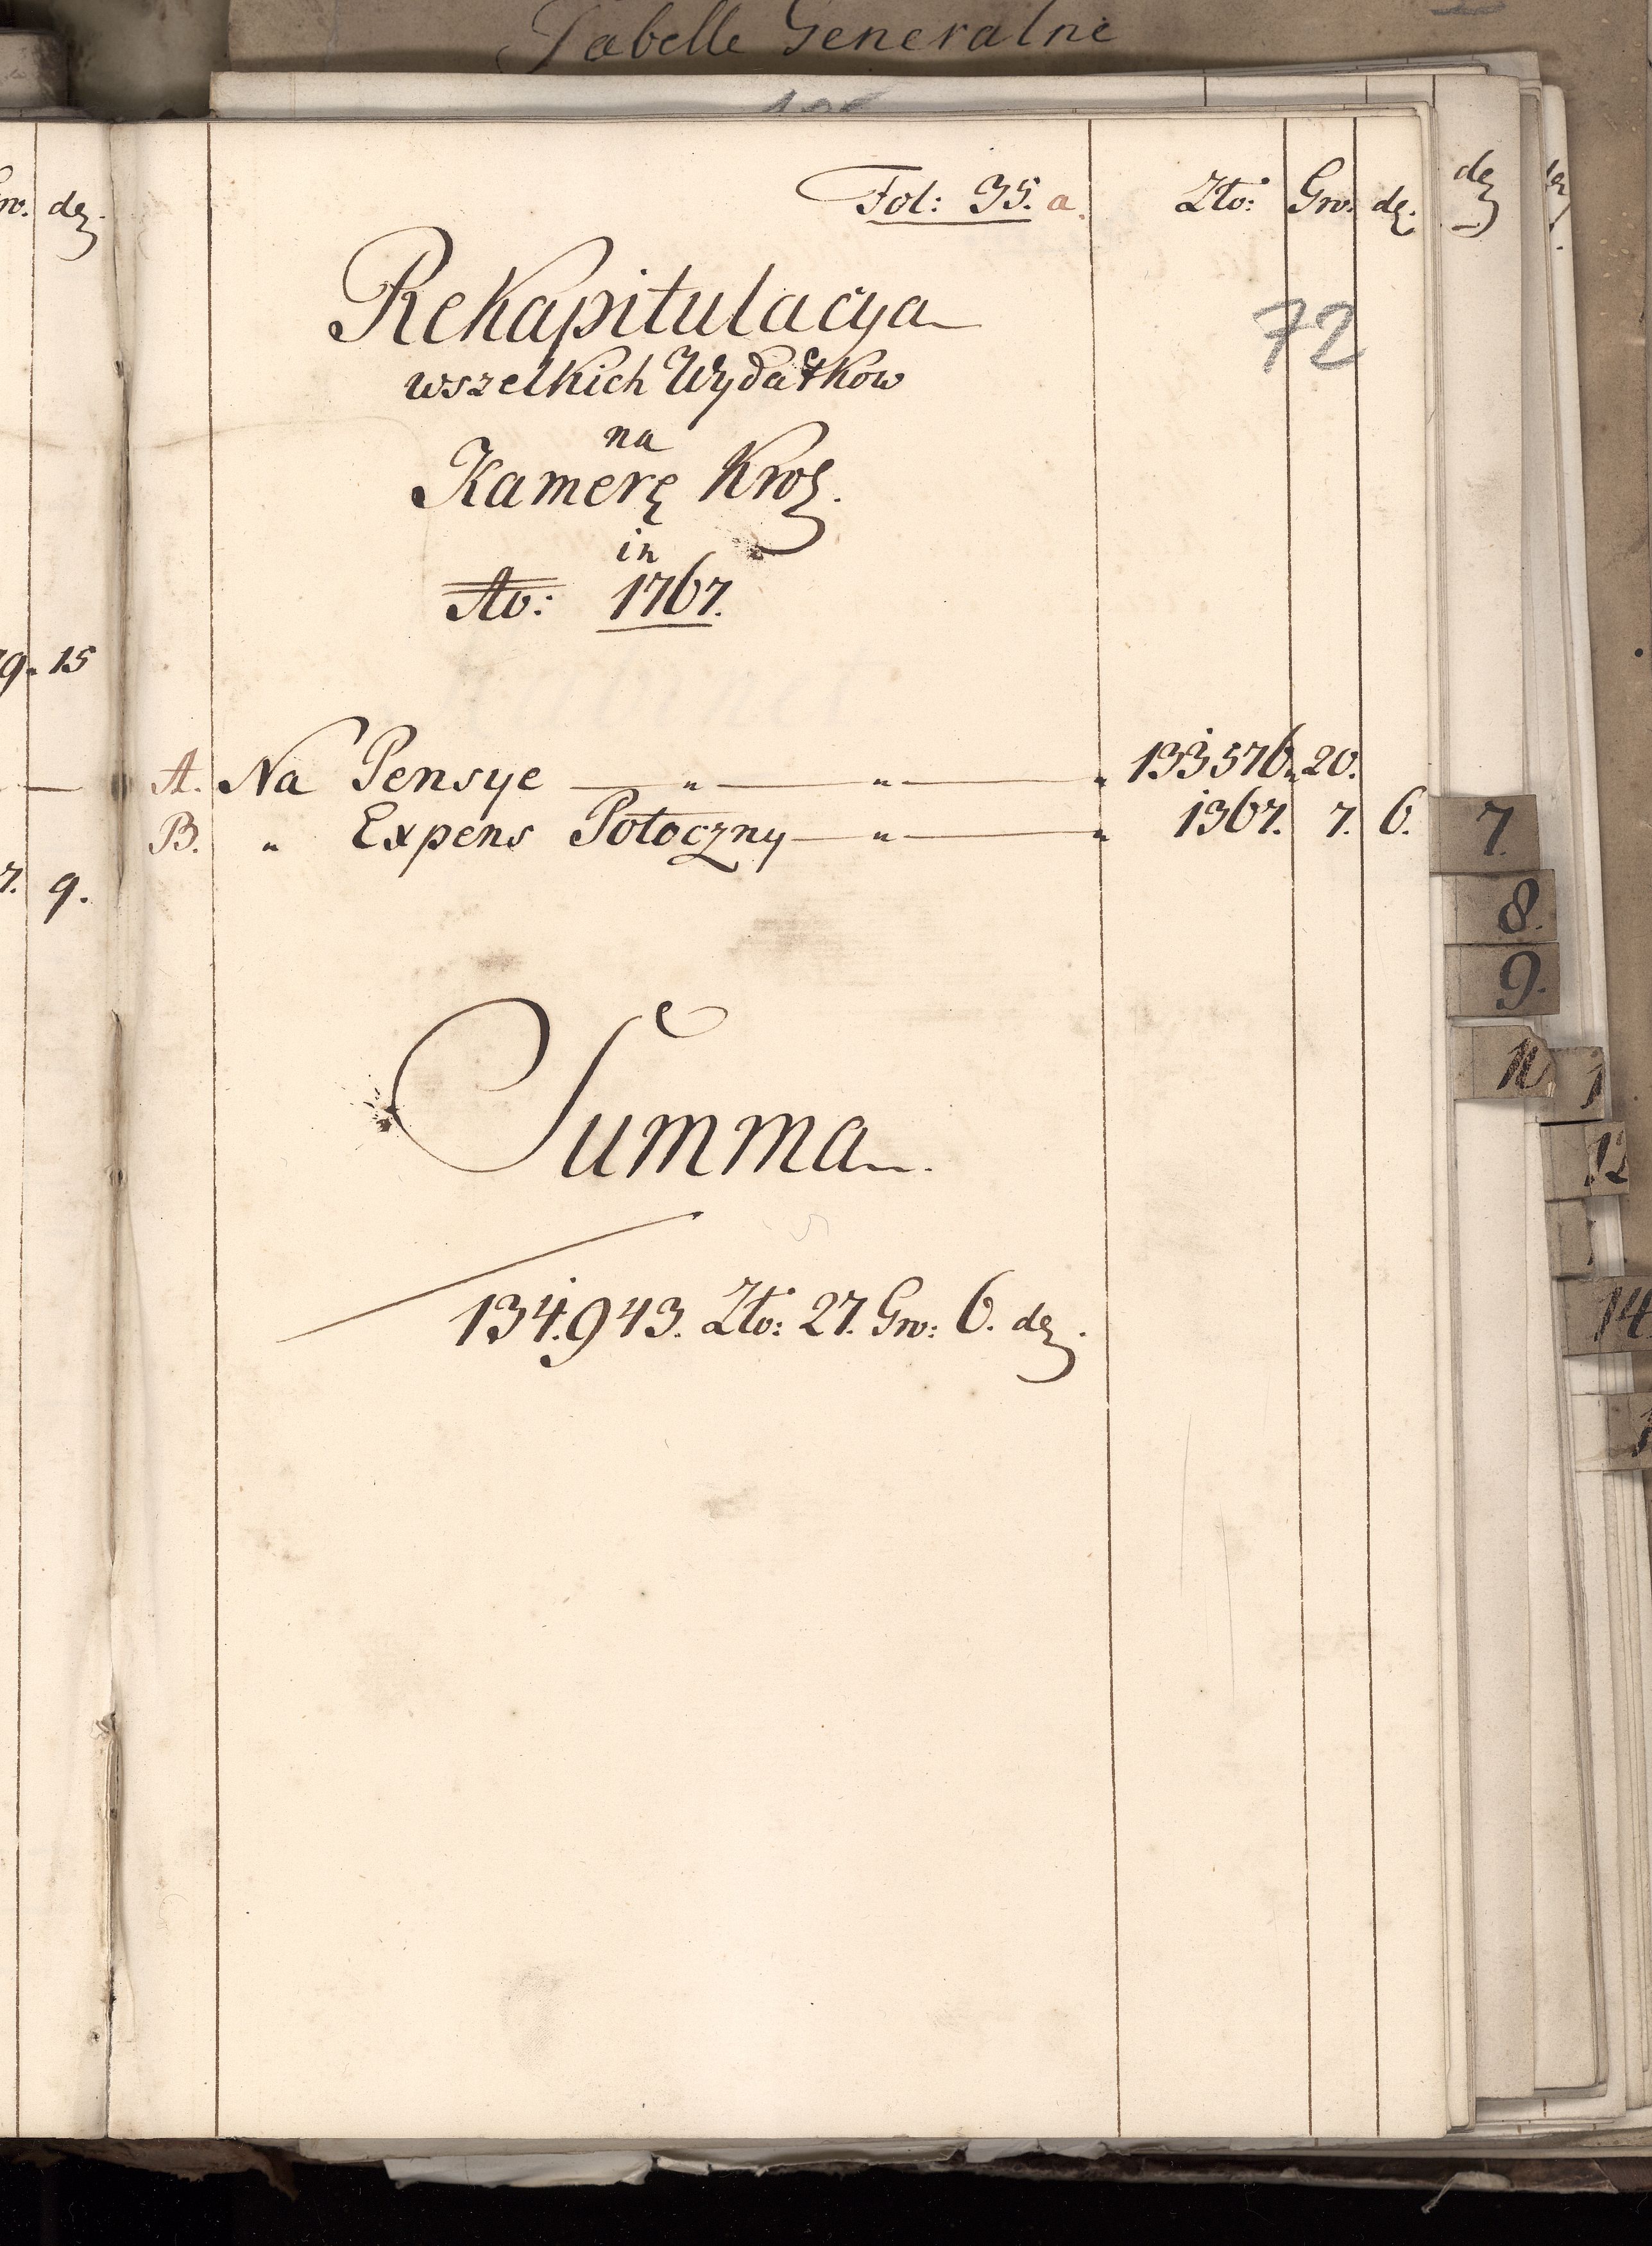 Tabelle Generalne
Fol: 35. a. Zło: Gro. dz.
72
Rekapitulacya
wszelkich Wydatkow
na
Kamerę Krol.
in
Ao: 1767.
A. Na Pensye — „ — „ — „ 133576. 20.
B. „ Expens Potoczny — „ — „ 1367. 7. 6.
Summa.
134.943. Zło: 27. Gro: 6. dz.
dz
dz.
9. 15
7. 9.
7.
8.
9.
12
14